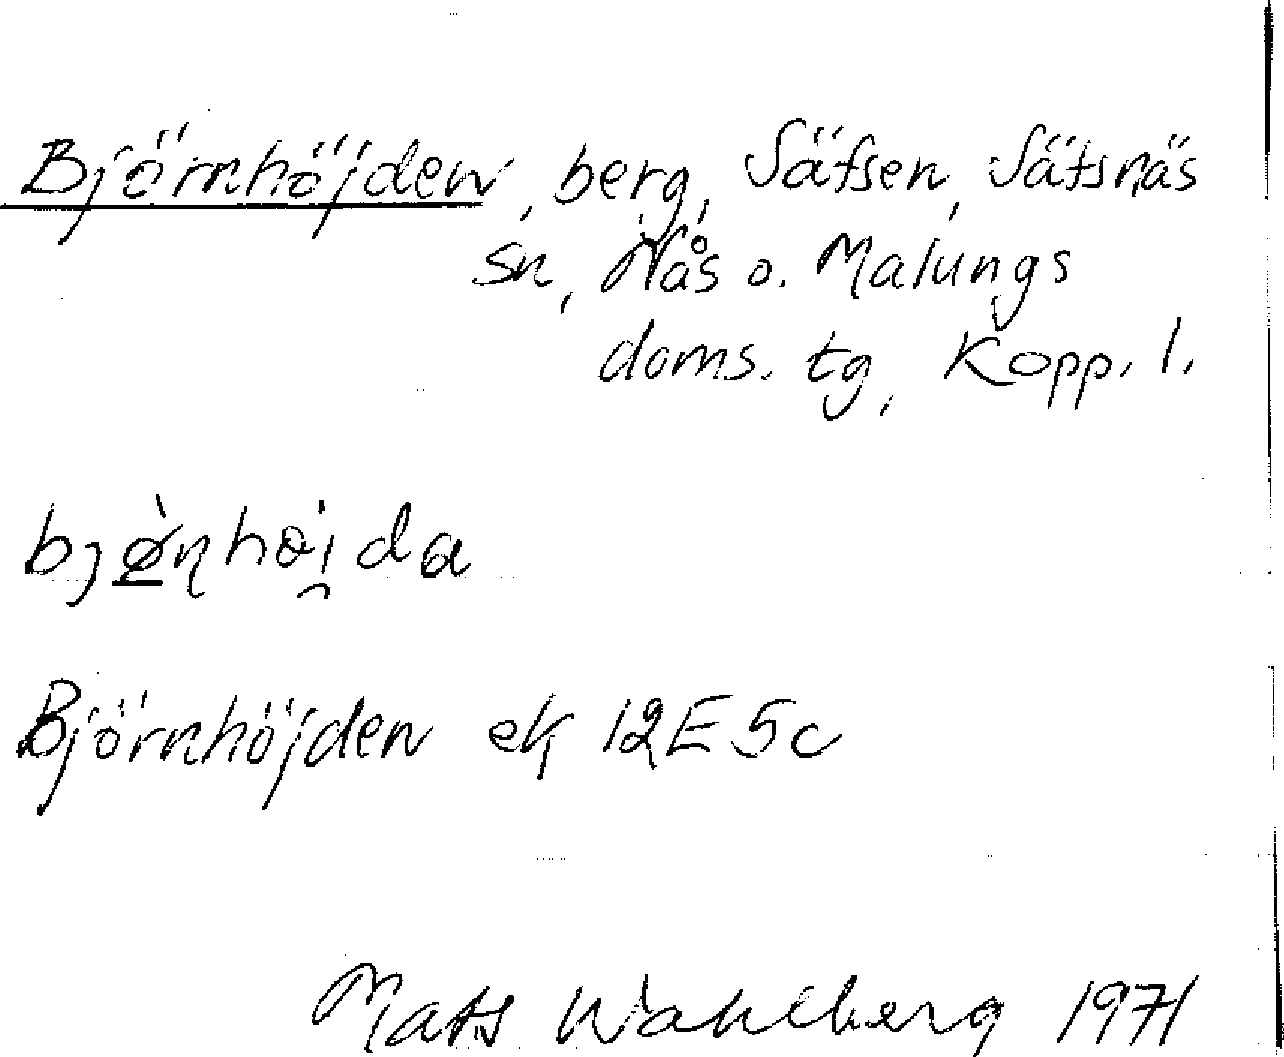 Björnhöjden, berg, Säfsen, Säfsnäs
sn, Nås o. Malungs
doms. tg, Kopp. l.
Björnhöjden ek 12E5c
Mats Wahlberg 1971